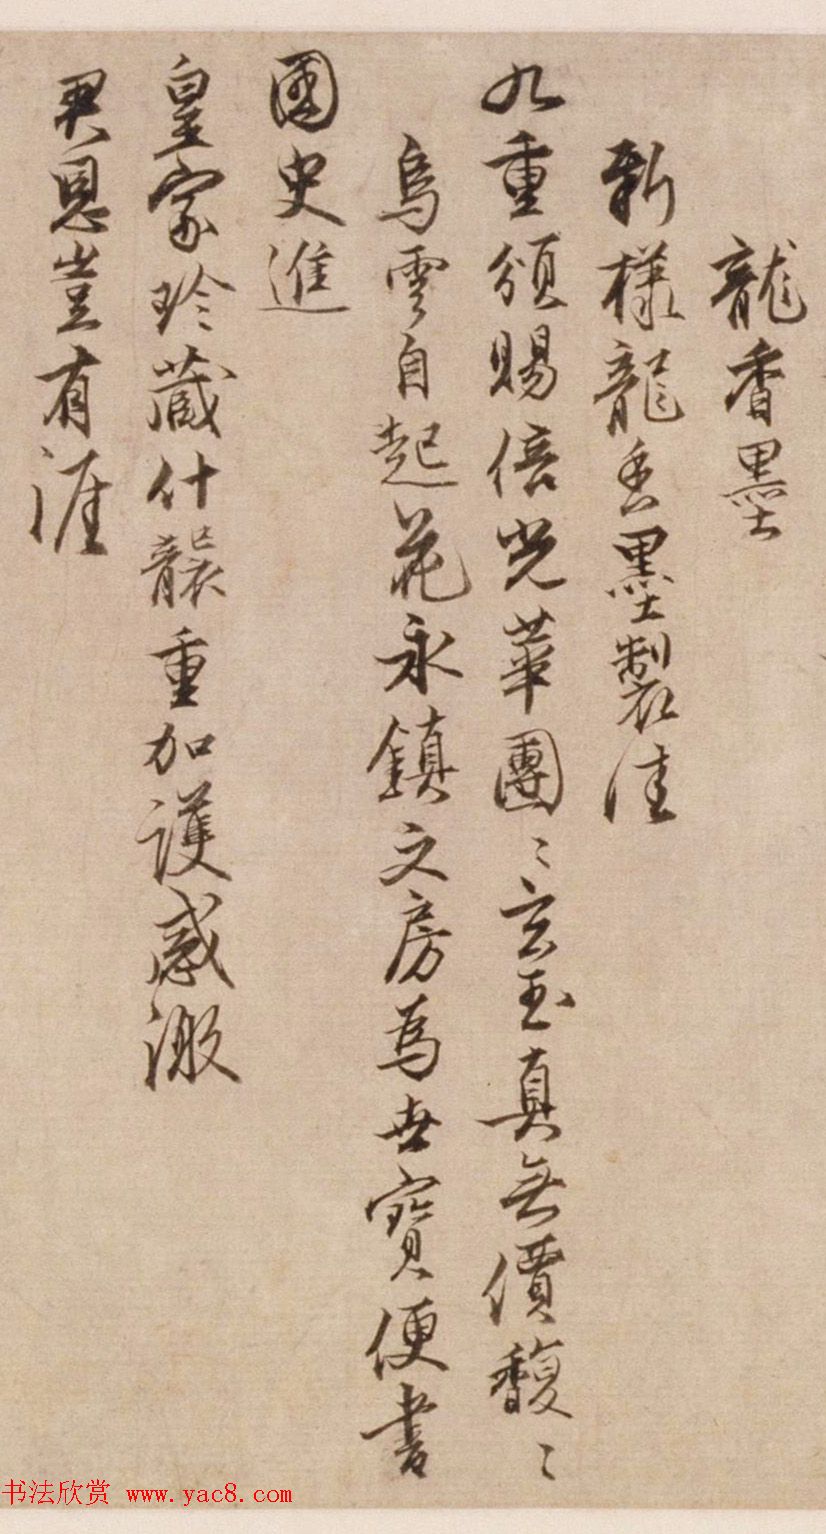 龍香墨
新樣龍香墨製佳
九重頒賜倍光華團〻玄玉真無價馥〻
烏雲自起花永鎮文房為世寶便書
國史進
皇家珍藏什襲重加護感激
君恩豈有涯
书法欣赏 www.yac8.com